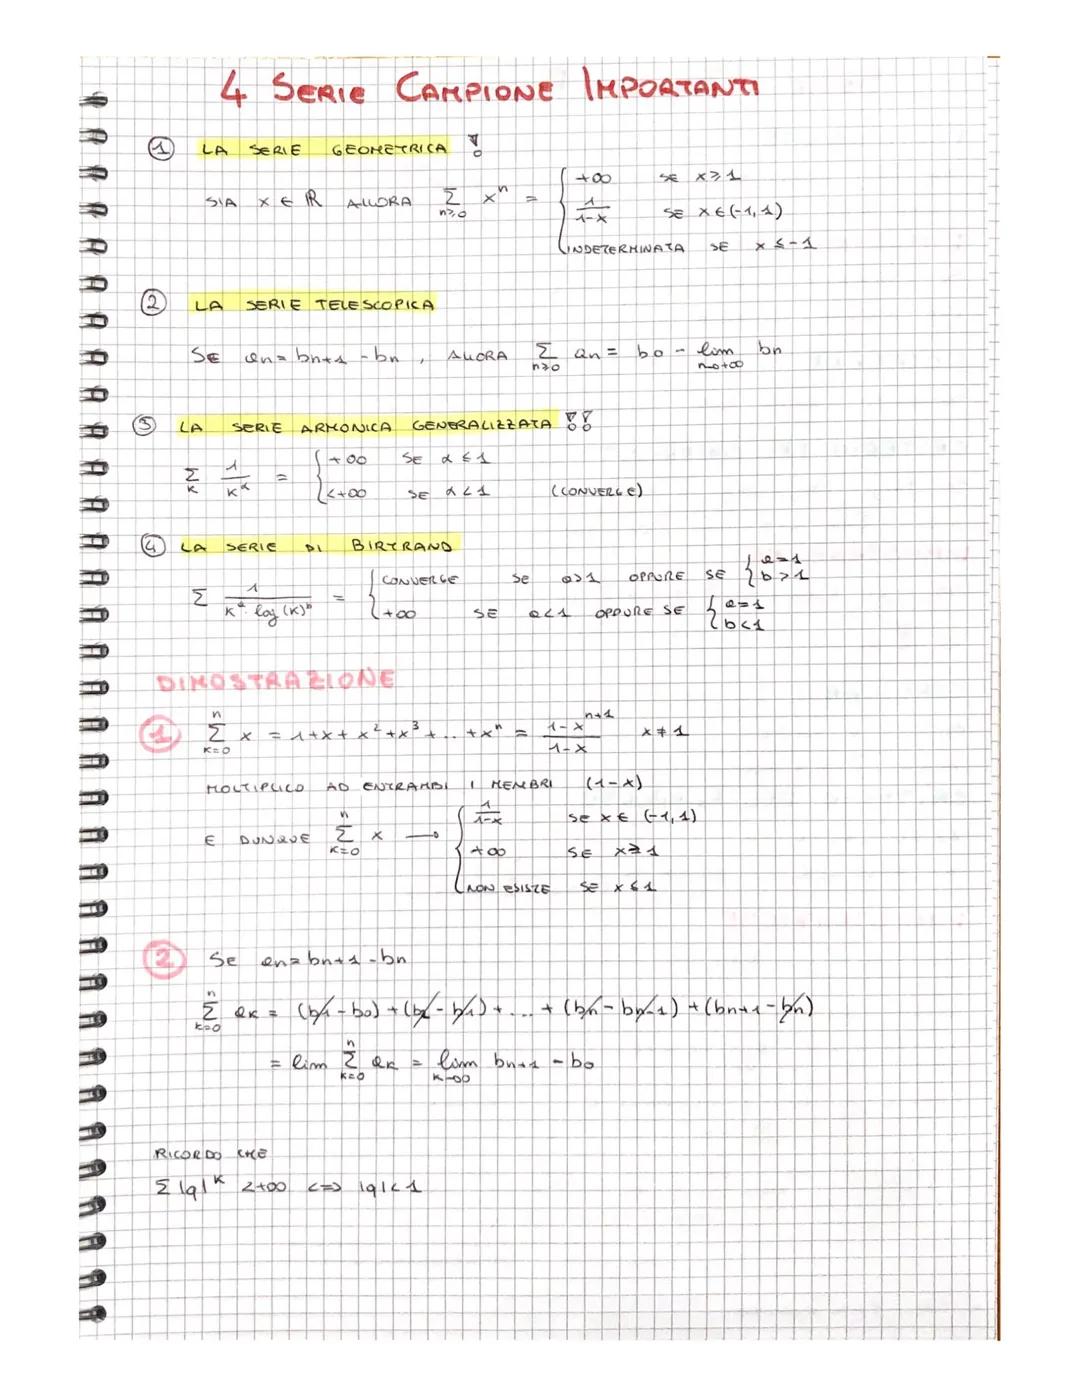 4 SERIE CAMPIONE IMPORTANTI
① LA SERIE GEOMETRICA !
SIA x ∈ ℝ ALLORA Σ_{n≥0} x^n = { +∞ SE x≥1
1/(1-x) SE x∈(-1,1)
INDETERMINATA SE x≤-1
② LA SERIE TELESCOPICA
SE an = bn+1 - bn , ALLORA Σ_{n≥0} an = b0 - lim_{n→+∞} bn
③ LA SERIE ARMONICA GENERALIZZATA !!
Σ_K 1/K^α = { +∞ SE α≤1
<+∞ SE α<1 (CONVERGE)
④ LA SERIE DI BIRTRAND
Σ 1/(K^a · log(K)^b) = { CONVERGE SE a>1 OPPURE SE { a=1 b>1
+∞ SE a<1 OPPURE SE { a=1 b<1
DIMOSTRAZIONE
① Σ_{K=0}^{n} x = 1+x+x²+x³+..+x^n = (1-x^{n+1})/(1-x) x≠1
MOLTIPLICO AD ENTRAMBI I MEMBRI (1-x)
E DUNQUE Σ_{K=0}^{n} x → { 1/(1-x) SE x∈(-1,1)
+∞ SE x≥1
NON ESISTE SE x≤1
② SE an = bn+1 - bn
Σ_{K=0}^{n} aK = (b1 - b0) + (b2 - b1) + ... + (bn - bn-1) + (bn+1 - bn)
= lim Σ_{K=0}^{n} aK = lim_{K→∞} bn+1 - b0
RICORDO CHE
Σ |q|^K <+∞ <=> |q|<1